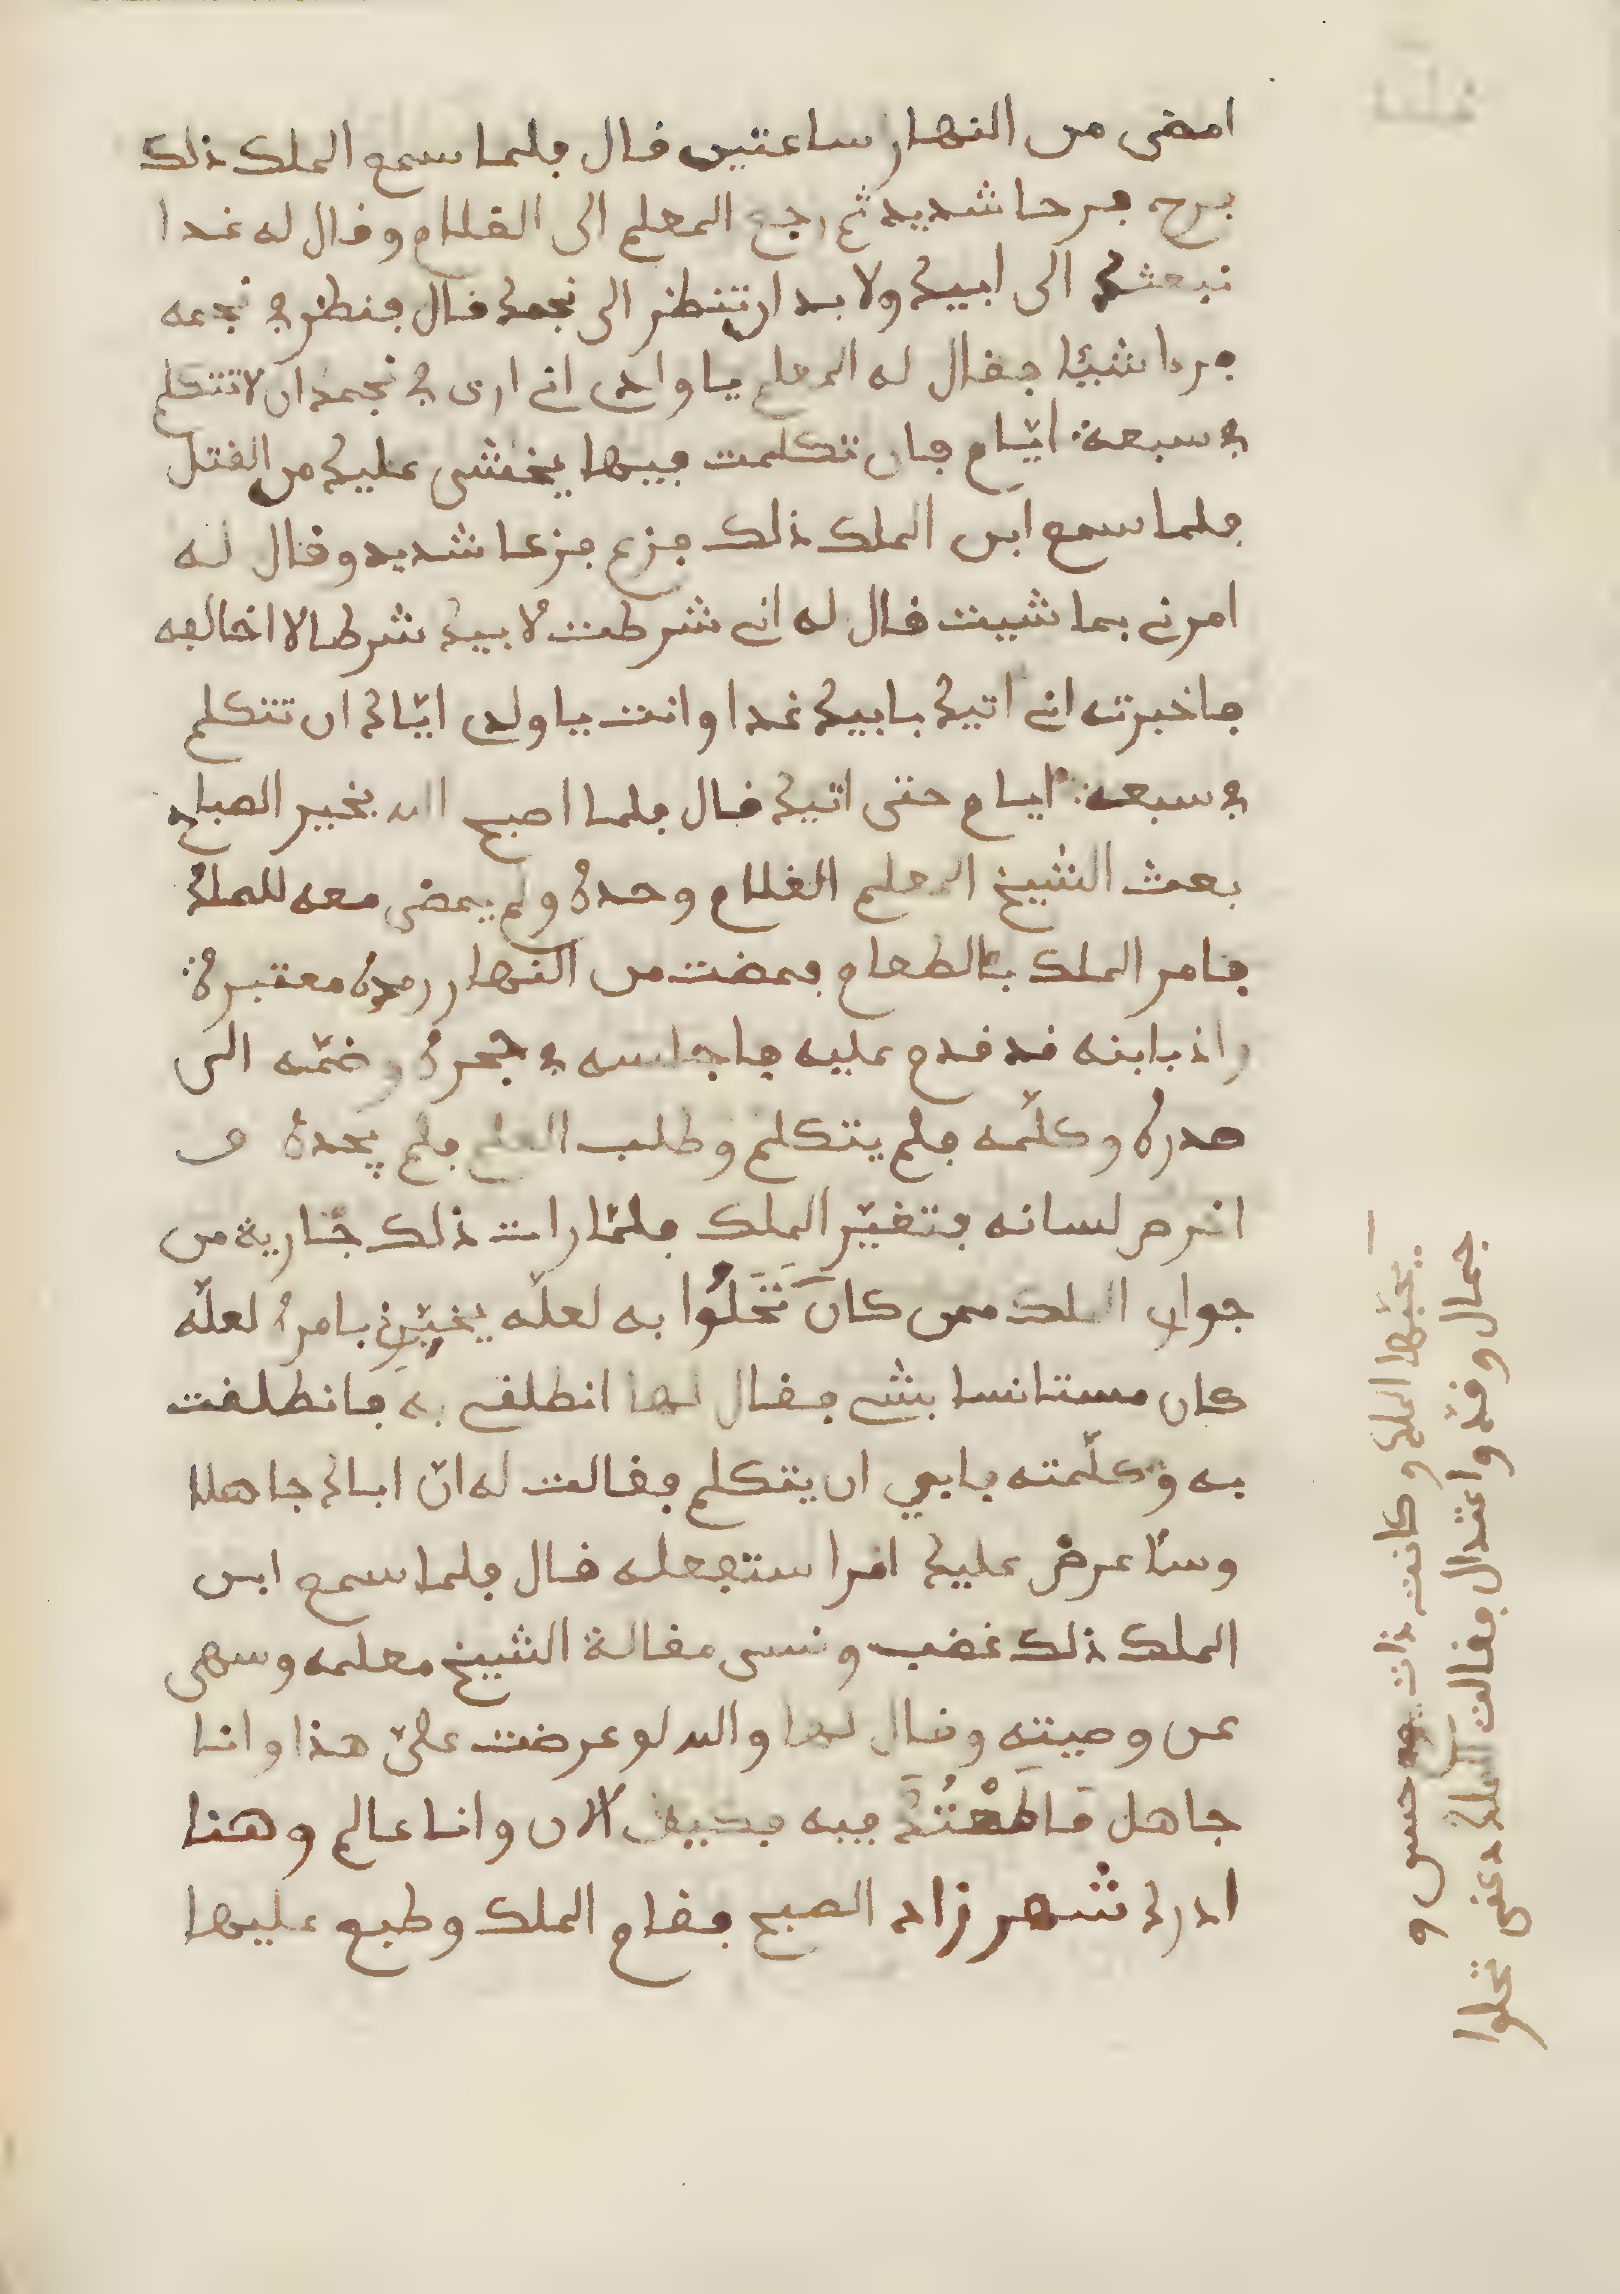 امضى من النهار ساعتين فال فلما سمع الملك ذلك
فرح فرحا شديد ثم رجع المعلم الى الغلام وفال له غدا
نبعثك الى ابيك ولا بد ان تنظر الى نجمك فال فنظر في نجمه
فرءا شيئا ففال له المعلم يا ولدي اني ارى في نجمك ان لا تتكلم
في سبعة ايّام فان تكلمت فيها يخشى عليك من الفتل
فلما سمع ابن الملك ذلك فزع فزعا شديد وفال له
امرني بما شيت فال له اني شرطت لابيك شرطا لا اخالفه
فاخبرته اني اتيك بابيك غدا وانت يا ولدي ايّاك ان تتكلم
في سبعة ايام حتى اتيك فال فلما اصبح الله بخير الصباح
بعث الشيخ المعلم الغلام وحده ولم يمض معه للملك
فامر الملك بالطعام فمضت من النهار مدة معتبرة
واذ بابنه فد فدم عليه فاجلسه في حجره وضمّه الى
صدره وكلّمه فلم يتكلم وطلب المعلم فلم يجده و
انخرص لسانه فتغيّر الملك فلمّا رات ذلك جارية من
جوار الملك ممن كان تَخَلُوا به لعلّه يخبّرني بامره لعلّه
كان مستانسا بشي ففال لها انطلفي به فانطلفت
به وكلّمته فابى ان يتكلم ففالت له انّ اباك جاهلا
وسأعرض عليك امرا ستفعله فال فلما سمع ابن
الملك ذلك غضب ونسى مفالة الشيخ معلمه وسهى
عن وصيته وفال لها والله لو عرضت عليّ هذا وانا
جاهل مَا طَعْتُكَ فيه فكيف الان وانا عالم وهنا
ادرك شهرزاد الصبح ففام الملك وطبع عليها
يحبّها الملك وكانت ذات حسن و
جمال وفدّ واعتدال ففالت الملك دعني نخلوا